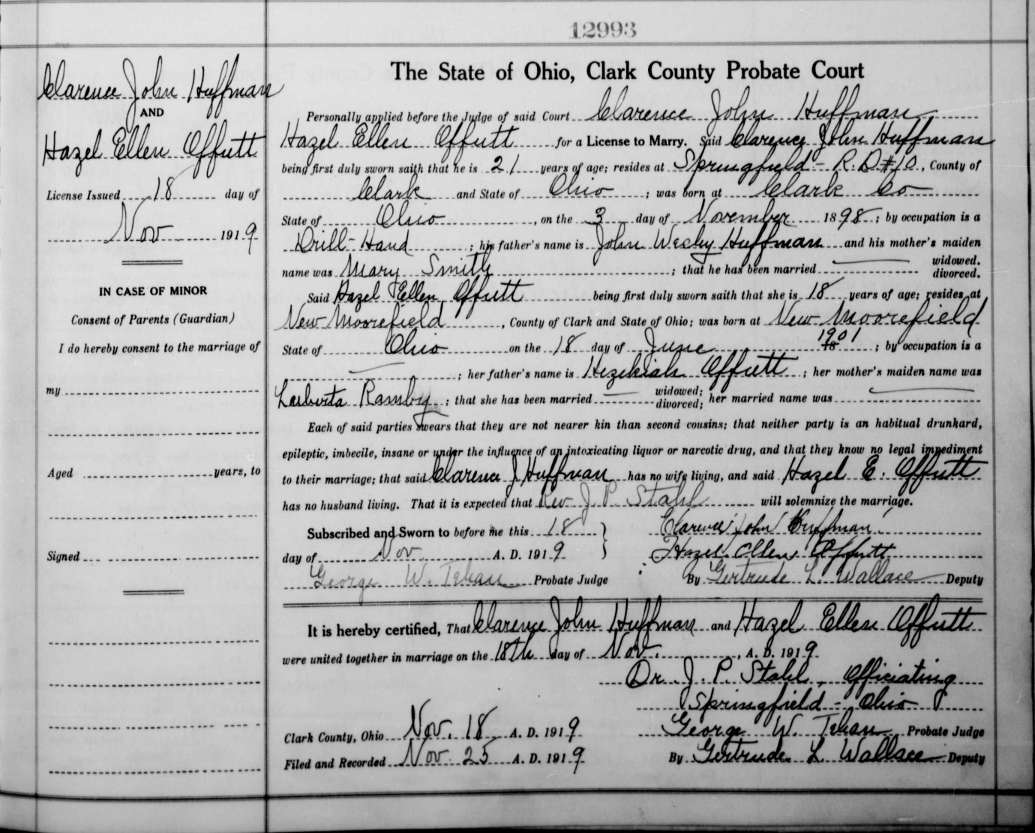 12993
Clarence John Huffman
AND
Hazel Ellen Offutt
License Issued 18 day of
Nov 1919
IN CASE OF MINOR
Consent of Parents (Guardian)
I do hereby consent to the marriage of
my
Aged years, to
Signed
The State of Ohio, Clark County Probate Court
Personally applied before the Judge of said Court Clarence John Huffman
Hazel Ellen Offutt for a License to Marry. Said Clarence John Huffman
being first duly sworn saith that he is 21 years of age; resides at Springfield - R.D.#10, County of
Clark and State of Ohio; was born at Clark Co
State of Ohio, on the 3 day of November 1898; by occupation is a
Drill-Hand; his father's name is John Wesly Huffman and his mother's maiden
name was Mary Smith; that he has been married widowed. divorced.
Said Hazel Ellen Offutt being first duly sworn saith that she is 18 years of age; resides at
New Moorefield, County of Clark and State of Ohio; was born at New Moorefield
State of Ohio on the 18 day of June 1901; by occupation is a
; her father's name is Hezekiah Offutt; her mother's maiden name was
Ramby; that she has been married widowed; divorced; her married name was
Each of said parties swears that they are not nearer kin than second cousins; that neither party is an habitual drunkard,
epileptic, imbecile, insane or under the influence of an intoxicating liquor or narcotic drug, and that they know no legal impediment
to their marriage; that said Clarence J Huffman has no wife living, and said Hazel E. Offutt
has no husband living. That it is expected that Rev J. P Stahl will solemnize the marriage.
Subscribed and Sworn to before me this 18 } Clarence John Huffman
day of Nov A. D. 1919 } Hazel Ellen Offutt
George W. Tehan Probate Judge By Gertrude L. Wallace Deputy
It is hereby certified, That Clarence John Huffman and Hazel Ellen Offutt
were united together in marriage on the 18th day of Nov. , A. D. 1919
Dr J. P. Stahl, Officiating
Springfield - Ohio
Clark County, Ohio Nov. 18 A. D. 1919 George W. Tehan Probate Judge
Filed and Recorded Nov 25 A. D. 1919 By Gertrude L Wallace Deputy